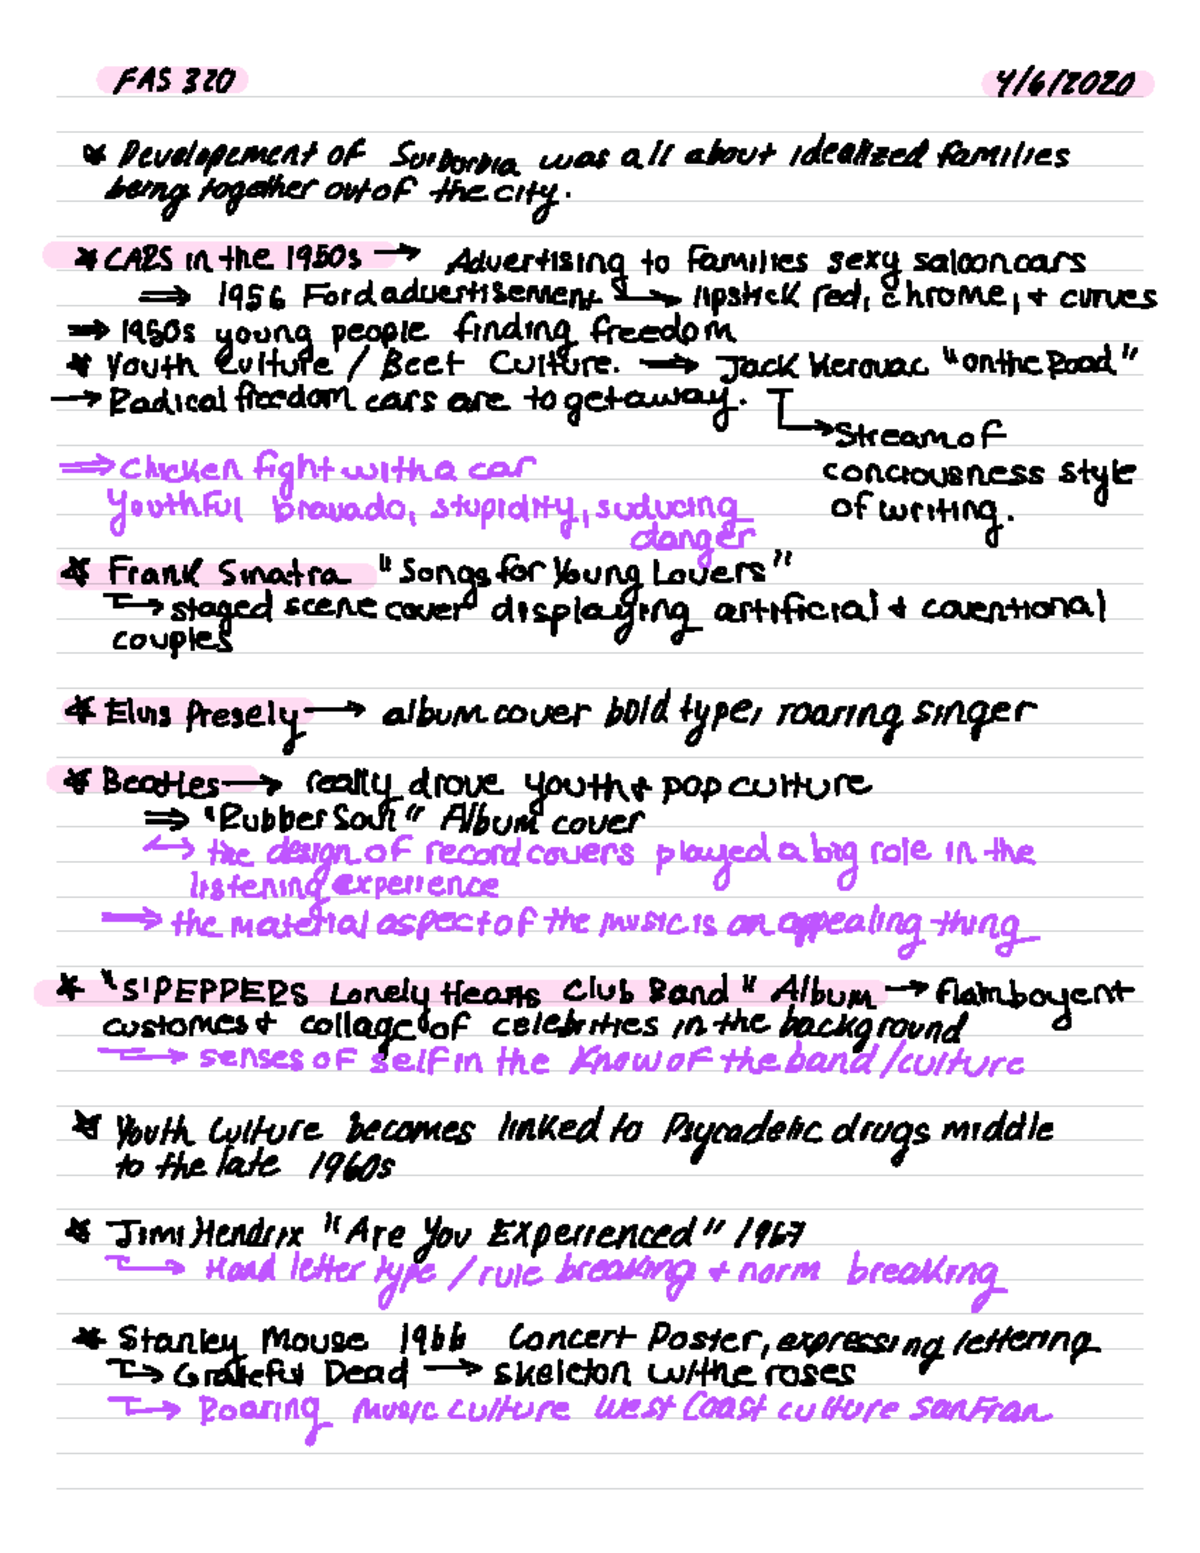 FAS 320 4/6/2020
* Developement of Surborbia was all about idealized families
being together out of the city.
* CARS in the 1950s → Advertising to families sexy saloon cars
⇒ 1956 Ford advertisement ↳ lipstick red, chrome, + curves
⇒ 1950s young people finding freedom
* Youth Culture / Beet Culture. ⇒ Jack Kerouac "on the Road"
→ Radical freedom cars are to get away.
↳ Stream of
conciousness style
of writing.
⇒ chicken fight with a car
youthful bravado, stupidity, suducing
danger
* Frank Sinatra "Songs for Young Lovers"
↳ staged scene cover displaying artificial + coventional
couples
* Elvis Presely → album cover bold type, roaring singer
* Beatles → really drove youth + pop culture
⇒ "Rubber Soul" Album cover
↔ the design of record covers played a big role in the
listening experience
⇒ the material aspect of the music is an appealing thing
* "S'PEPPERS Lonely Hearts Club Band" Album → flamboyent
customes + collage of celebrities in the background
↳ senses of self in the know of the band/culture
* Youth Culture becomes linked to Psycadelic drugs middle
to the late 1960s
* Jimi Hendrix "Are You Experienced" 1967
↳ Hand letter type / rule breaking + norm breaking
* Stanley Mouse 1966 Concert Poster, expressing lettering
↳ Grateful Dead → skeleton w/the roses
↳ Roaring music culture West Coast culture sanFran